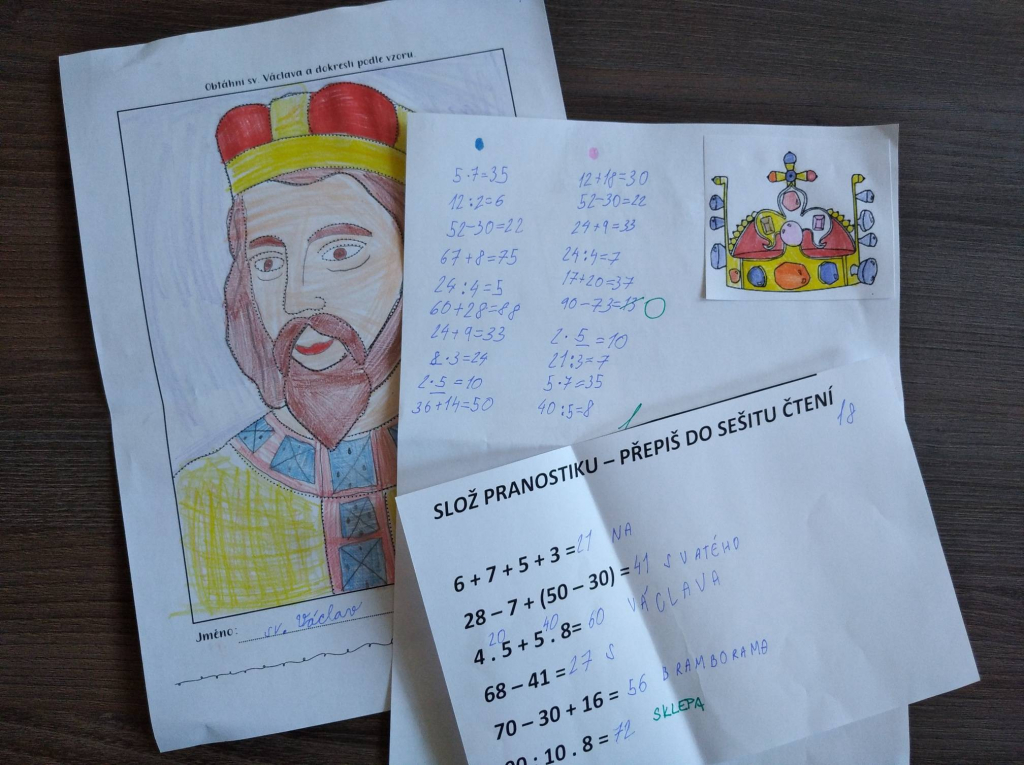 Obtáhni sv. Václava a dokresli podle vzoru.
Jméno: sv. Václav
5·7=35
12:2=6
52-30=22
67+8=75
24:4=5
60+28=88
24+9=33
8·3=24
2·5=10
36+14=50
12+18=30
52-30=22
24+9=33
24:4=7
17+20=37
90-73=
2·5=10
21:3=7
5·7=35
40:5=8
SLOŽ PRANOSTIKU – PŘEPIŠ DO SEŠITU ČTENÍ
18
6 + 7 + 5 + 3 = 21 NA
28 – 7 + (50 – 30) = 41 SVATÉHO
20 40
4 . 5 + 5 . 8 = 60 VÁCLAVA
68 – 41 = 27 S
70 – 30 + 16 = 56 BRAMBORAMA
0 : 10 . 8 = 72 SKLEPA